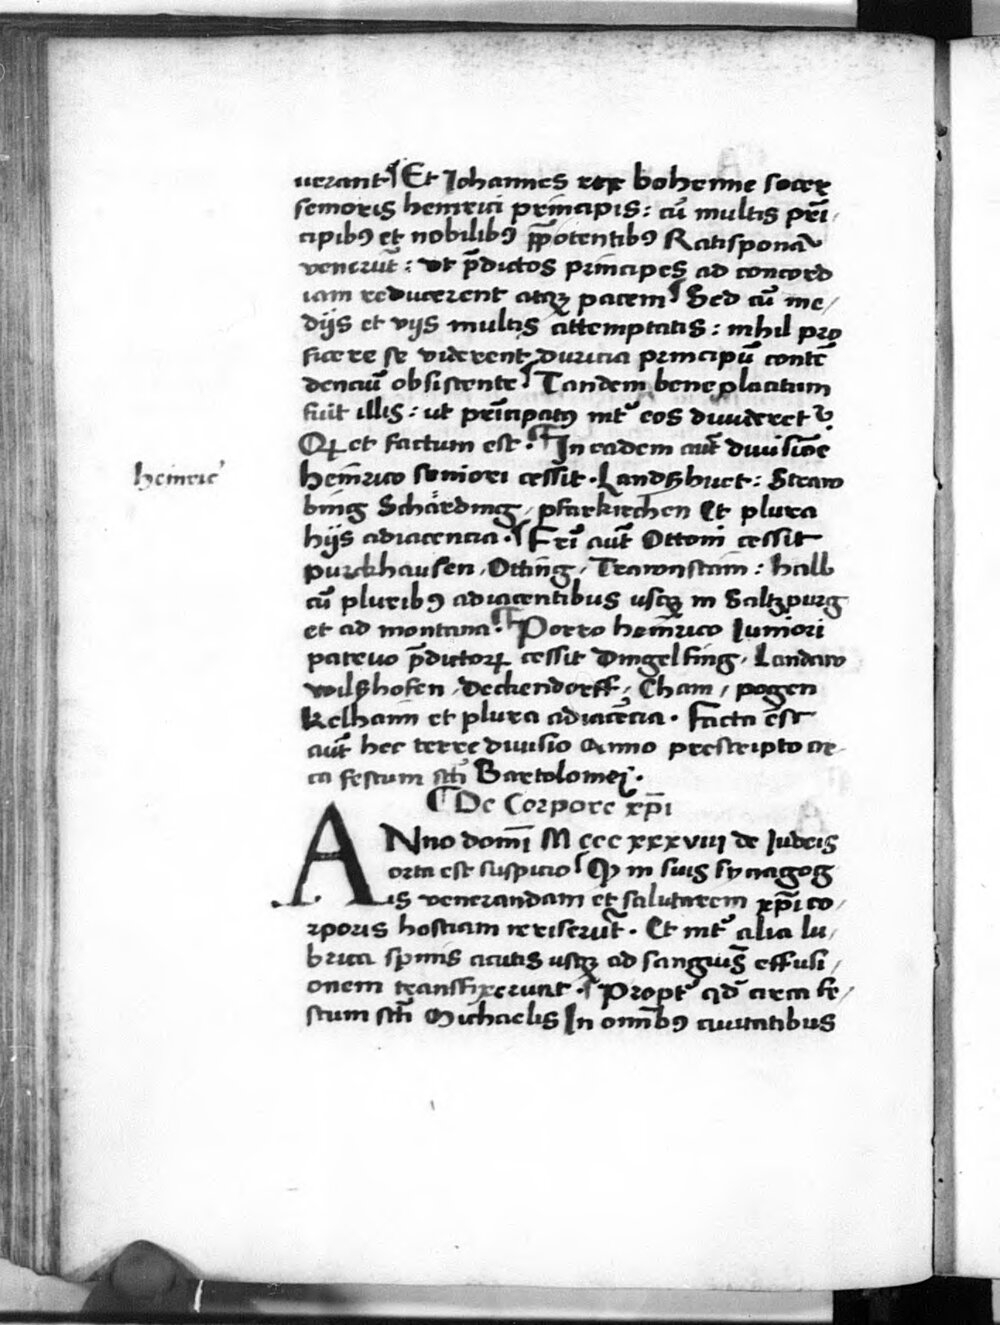 uerant ¶ Et Iohannes rex bohemie socer
senioris heinrici principis : cū multis prī/
cipibꝯ et nobilibꝯ p̲potentibꝯ Ratisponā
venerūt : vt p̄dictos principes ad concord
iam reducerent atqꝫ pacem ¶ Sed cū me/
dijs et vijs multis attemptatis : nihil pro
ficere se viderent duricia principū contē
denciū obsistente ¶ Tandem bene placitum
fuit illis : ut prīcipatꝯ int͛ eos diuideret᷑
Qꝫ et factum est . ¶ In eadem aūt diuisiōe
heinric᷒
heīnrico seniori cessit . Landßhuet : Straw
bing Schärding / pfarkirchen Et plura
hijs adiacencia . ¶ Frī aūt Ottoni cessit
purckhausen / Otting / Trawnstain : hall
cū pluribꝯ adiacentibus usqꝫ in Saltzpurg
et ad montana . ¶ Porro heinrico Iuniori
patruo p̄dictoꝝ cessit Dingelfing / Landaw
vilßhofen / Deckendorff / Cham / pogen
kelhaim et plura adiacēcia . Facta est
aūt hec terre diuisio Anno prescripto cir
ca festum scti̅ Bartolomei .
¶ De Corpore xp̅i
ANno domī M ccc xxxviii de Iudeis
orta est suspicio ¶ Qꝫ in suis synagog
is venerandam et salutarem xp̅i co/
rporis hostiam irriserūt . Et int͛ alia lu/
brica spinis acutis usqꝫ ad sanguīs effusi/
onem transfixerunt . ¶ Propt͛ qd̄ circa fe/
stum scti̅ Michaelis In omībꝯ ciuitatibus